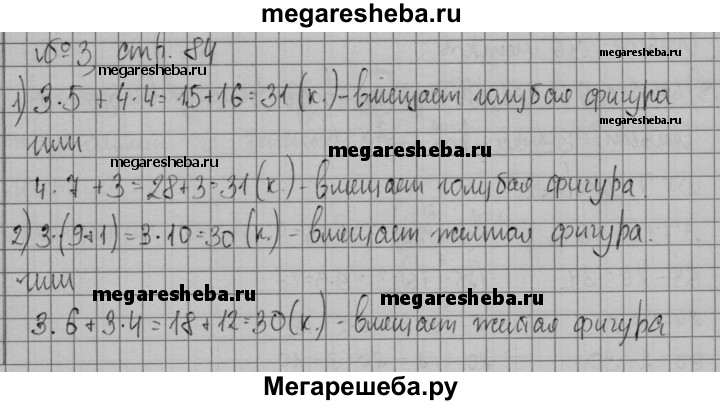 megaresheba.ru
№3 стр. 84
megaresheba.ru
megaresheba.ru
1) 3·5 + 4·4 = 15+16 = 31 (к.) - вмещает голубая фигура
megaresheba.ru
или
megaresheba.ru
megaresheba.ru
4·7 + 3 = 28+3 = 31 (к.) - вмещает голубая фигура.
2) 3·(9+1) = 3·10 = 30 (к.) - вмещает желтая фигура.
или
megaresheba.ru
megaresheba.ru
3·6 + 3·4 = 18 + 12 = 30 (к.) - вмещает желтая фигура
Мегарешеба.ру